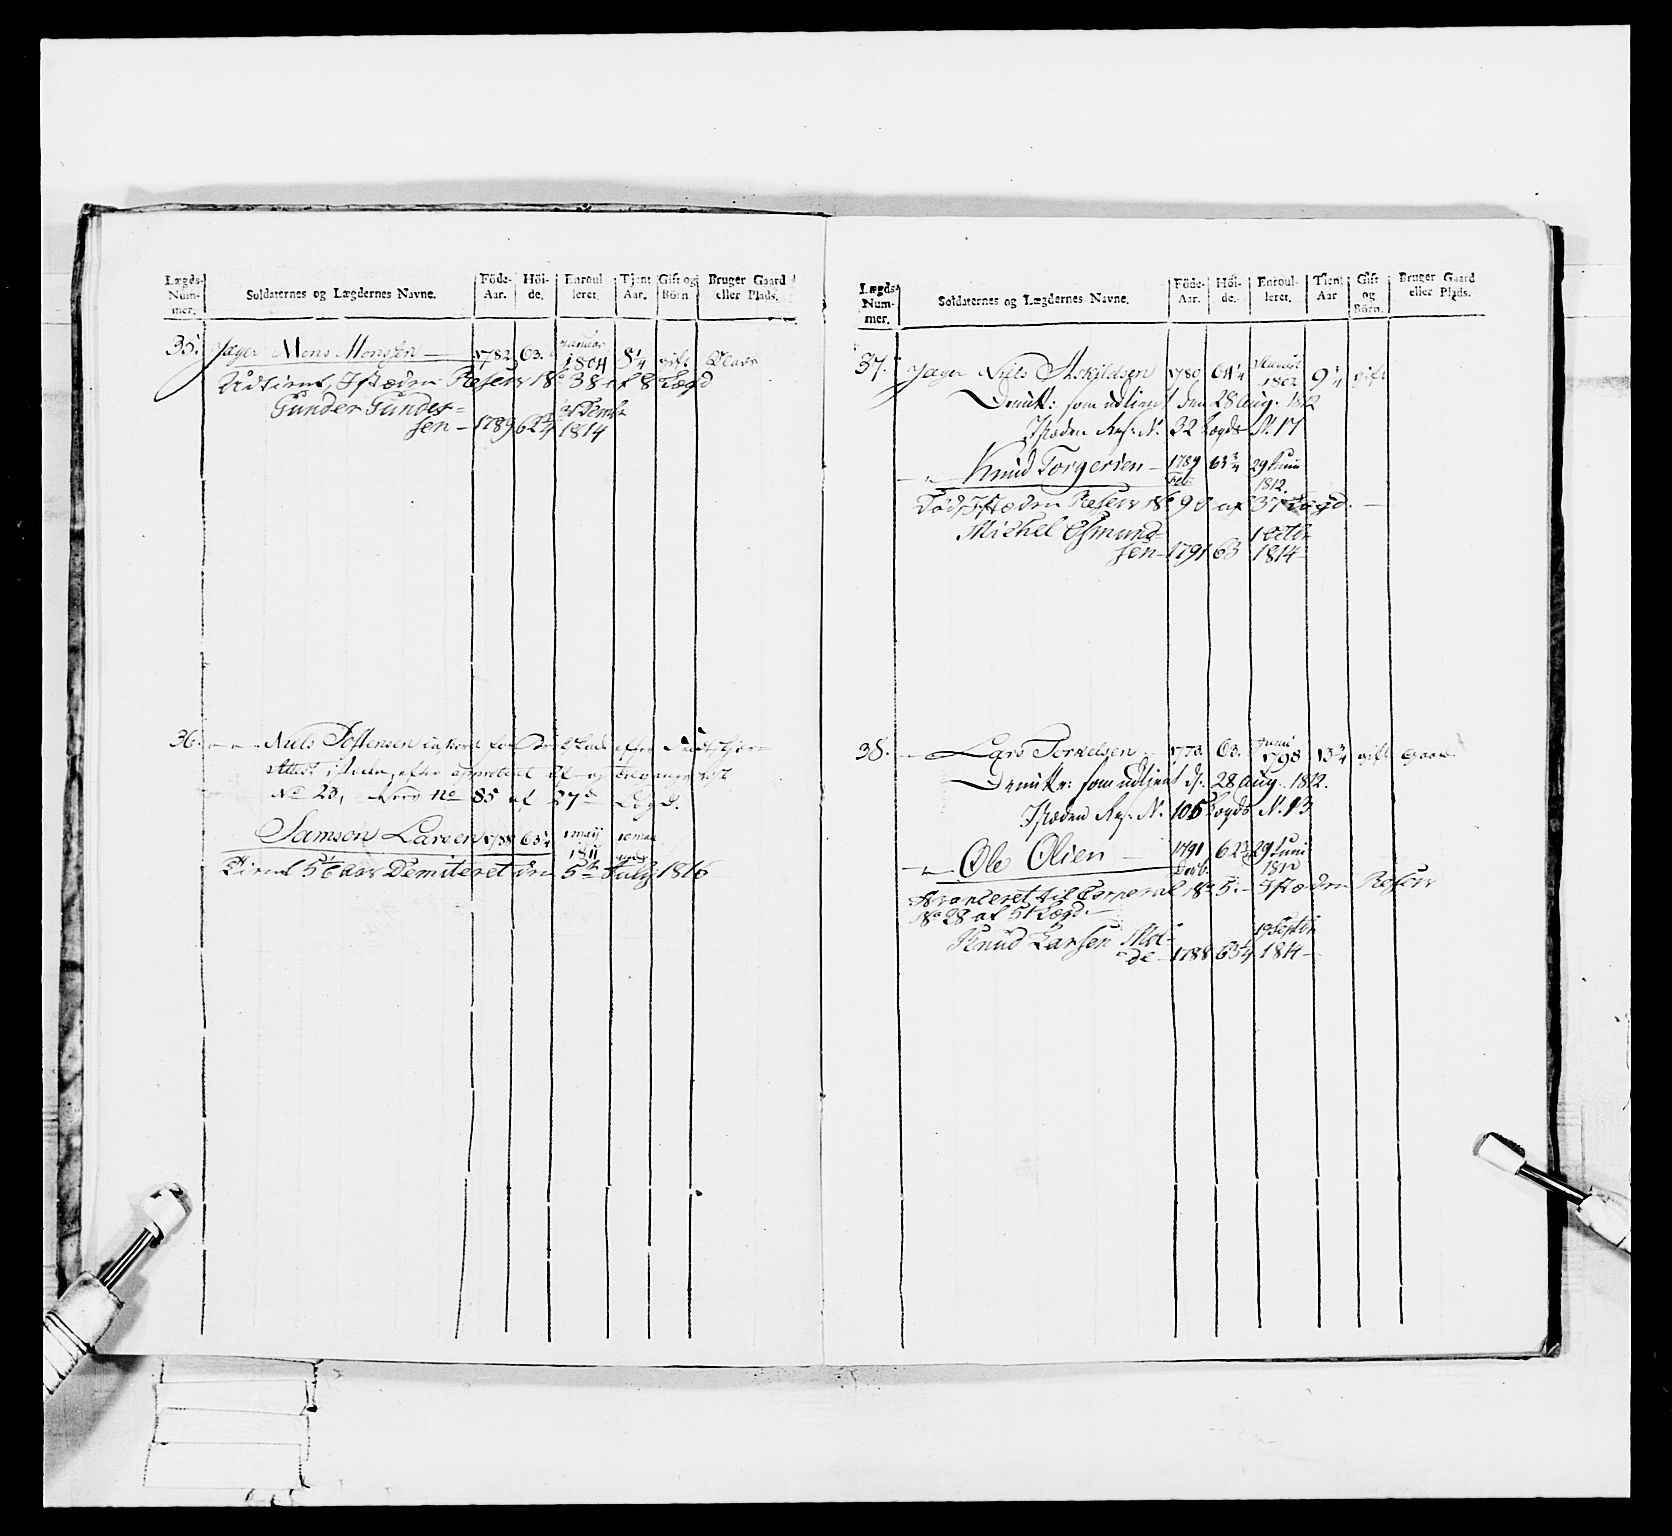 Lægds-Num-mer. Soldaternes og Lægdernes Navne. Föde-Aar. Höi-de. Enroul-leret. Tjent Aar. Gift og Börn Bruger Gaard eller Plads.
35. Jæger Mons Monssen — 1782 63. Januar 1804 8 1/4 gift
Udtient, Istæden Reserv No 38 af 8 Lægd
Gunder Gunder=
sen — 1789 62 1/4 1814
36. — " — Niels Tostensen
No 23, No 85 af 27de Lægd.
Samson Larsen 1788 63 1/4 1 maij 1811
Tient 5 Aar Demiteret den 5te July 1816
Lægds-Num-mer. Soldaternes og Lægdernes Navne. Föde-Aar. Höi-de. Enroul-leret. Tjent Aar Gift og Börn. Bruger Gaard eller Plads.
37. Jæger Niels Askildsen 1780 64 1/4 1802 9 1/4 gift
Demitt: som udtient den 28 Aug. 1812
Istæden Res: N. 32 Lægds N. 17
— " — Knud Torgersen — 1789 63 3/4 29 Juni 1812.
Död, Istæden Reserv No 90 af 37 Lægd. —
Michel Osmund=
sen — 1791 63 1 Octbr 1814 —
38. — Lars Torkelsen 1773 63. Junii 1798 13 3/4 gift Gaard
Demitt: som udtient d: 28 Aug. 1812.
Istæden Res: N. 105 Lægds N. 13
— " — Ole Olsen — 1791 62 3/4 29 Juni 1812
Avanceret til Corporal No 5. — Istæden Reserv
No 28 af 51 Lægd. —
Knud Larsen Moe= 19 Septbr
de — 1788 63 1/4 1814 —